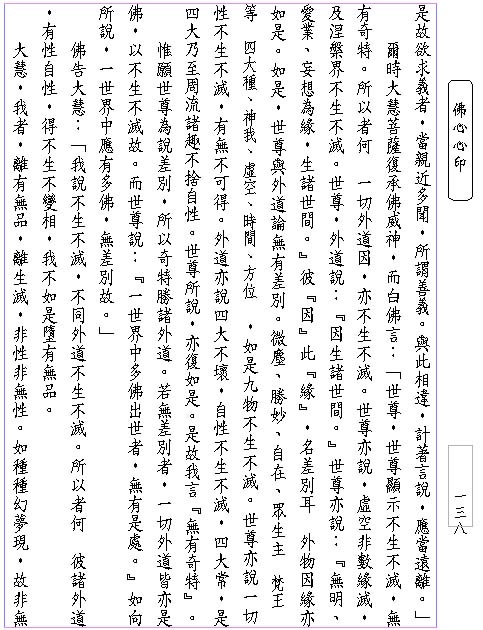 佛心心印
一三八
是故欲求義者，當親近多聞，所謂善義。與此相違，計著言說，應當遠離。」
爾時大慧菩薩復承佛威神，而白佛言：「世尊，世尊顯示不生不滅，無
有奇特。所以者何 一切外道因，亦不生不滅。世尊亦說，虛空非數緣滅，
及涅槃界不生不滅。世尊，外道說：『因生諸世間。』世尊亦說：『無明、
愛業、妄想為緣，生諸世間。』彼『因』此『緣』，名差別耳 外物因緣亦
如是。如是，世尊與外道論無有差別。微塵、勝妙、自在、眾生主 梵王
等 四大種、神我、虛空、時間、方位 ，如是九物不生不滅。世尊亦說一切
性不生不滅，有無不可得。外道亦說四大不壞，自性不生不滅，四大常，是
四大乃至周流諸趣不捨自性。世尊所說，亦復如是。是故我言『無有奇特』。
惟願世尊為說差別，所以奇特勝諸外道。若無差別者，一切外道皆亦是
佛，以不生不滅故。而世尊說：『一世界中多佛出世者，無有是處。』如向
所說，一世界中應有多佛，無差別故。」
佛告大慧：「我說不生不滅，不同外道不生不滅。所以者何 彼諸外道
，有性自性，得不生不變相，我不如是墮有無品。
大慧，我者，離有無品，離生滅，非性非無性。如種種幻夢現，故非無